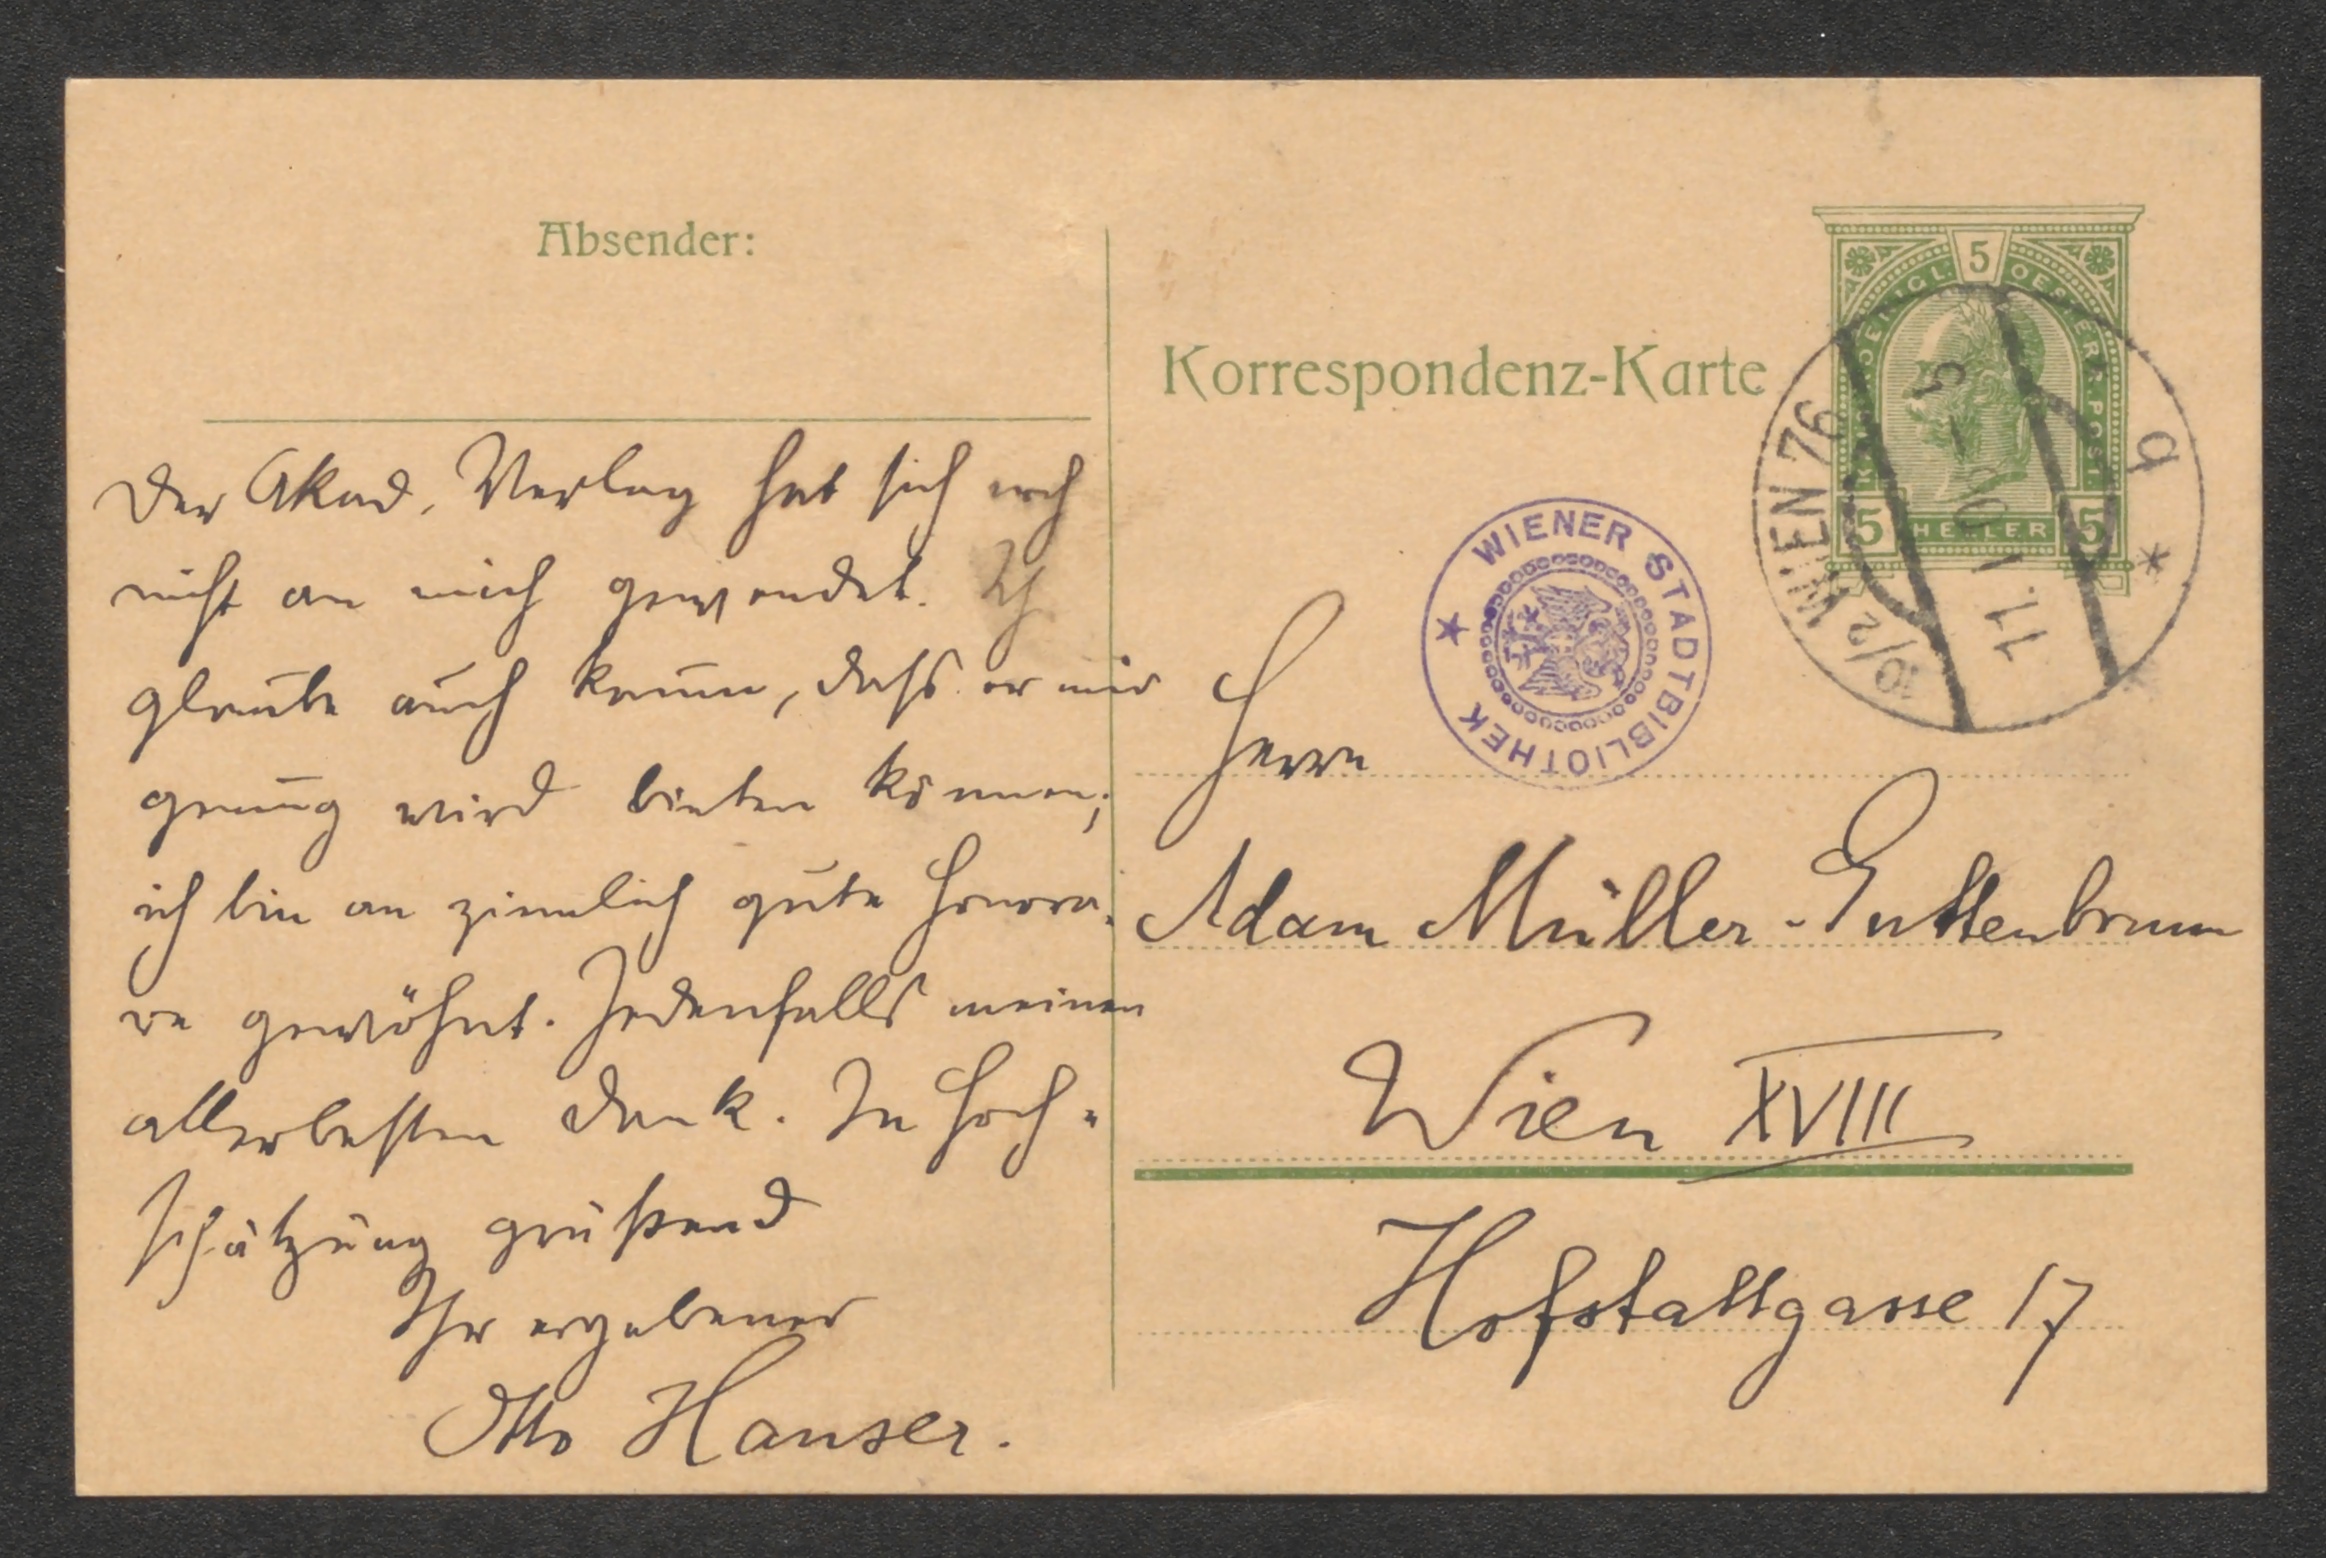 Absender:
Der Akad. Verlag hat sich noch
nicht an mich gewendet. Ich
glaube auch kaum, dass er mir
genug wird bieten können;
ich bin an ziemlich gute Honora-
re gewöhnt. Jedenfalls meinen
allerbesten Dank. In Hoch-
schätzung grüßend
Ihr ergebener
Otto Hauser.
Korrespondenz-Karte
5
OESTERR. POST.
5 HELLER 5
10/2 WIEN 76
WIENER STADTBIBLIOTHEK
Herrn
Adam Müller-Guttenbrunn
Wien XVIII
Hofstattgasse 17